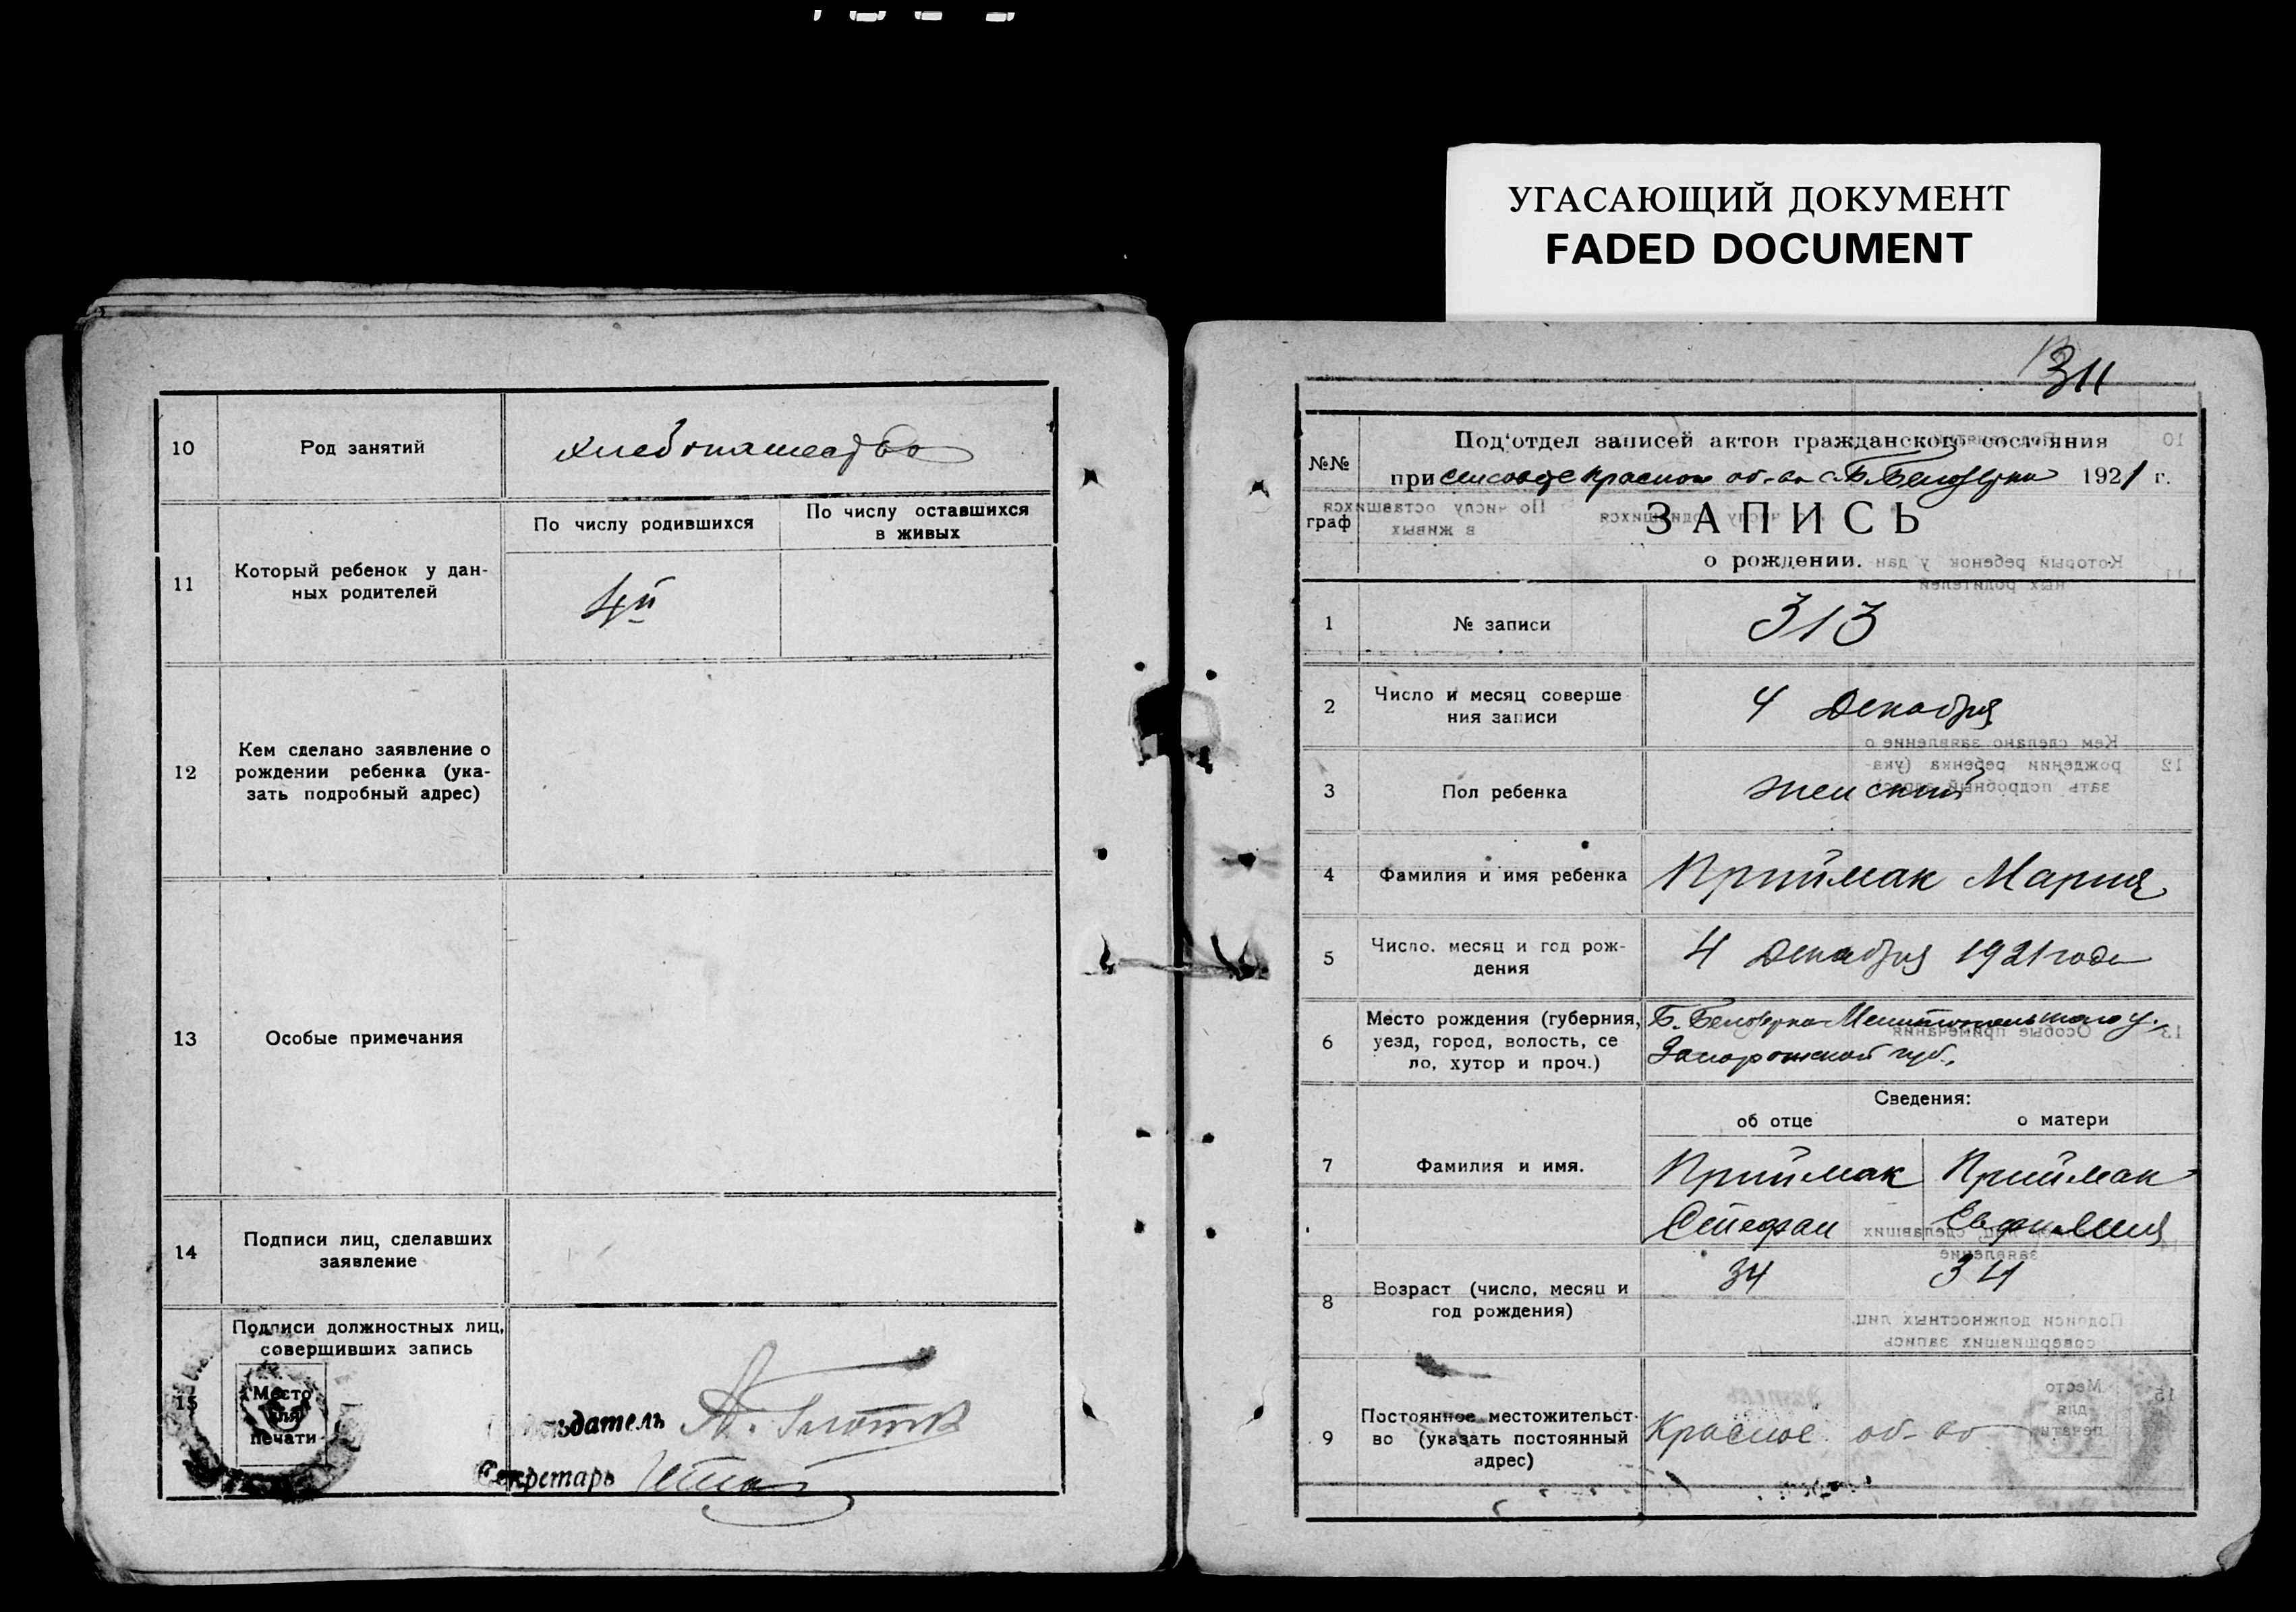 УГАСАЮЩИЙ ДОКУМЕНТ
FADED DOCUMENT
10
Род занятий
хлебопашество
11
Который ребенок у дан-
ных родителей
По числу родившихся
По числу оставшихся
в живых
4й
12
Кем сделано заявление о
рождении ребенка (ука-
зать подробный адрес)
13
Особые примечания
14
Подписи лиц, сделавших
заявление
15
Подписи должностных лиц,
совершивших запись
Место
для
печати
Председатель
Секретарь
311
№№
граф
Под'отдел записей актов гражданского состояния
при сельсовете Красном об-ва с. Б. Белозерка 1921 г.
ЗАПИСЬ
о рождении.
1
№ записи
313
2
Число и месяц соверше
ния записи
4 Декабря
3
Пол ребенка
женский
4
Фамилия и имя ребенка
Приймак Мария
5
Число, месяц и год рож-
дения
4 Декабря 1921 года
6
Место рождения (губерния,
уезд, город, волость, се
ло, хутор и проч.)
Б. Белозерка Мелитопольского у.,
Запорожской губ.,
Сведения:
об отце
о матери
7
Фамилия и имя.
Приймак
Стефан
Приймак
Евфимия
8
Возраст (число, месяц и
год рождения)
34
34
9
Постоянное местожительст-
во (указать постоянный
адрес)
Красное об-во